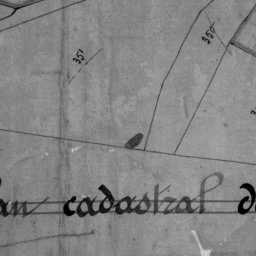 351
350
an cadastral d